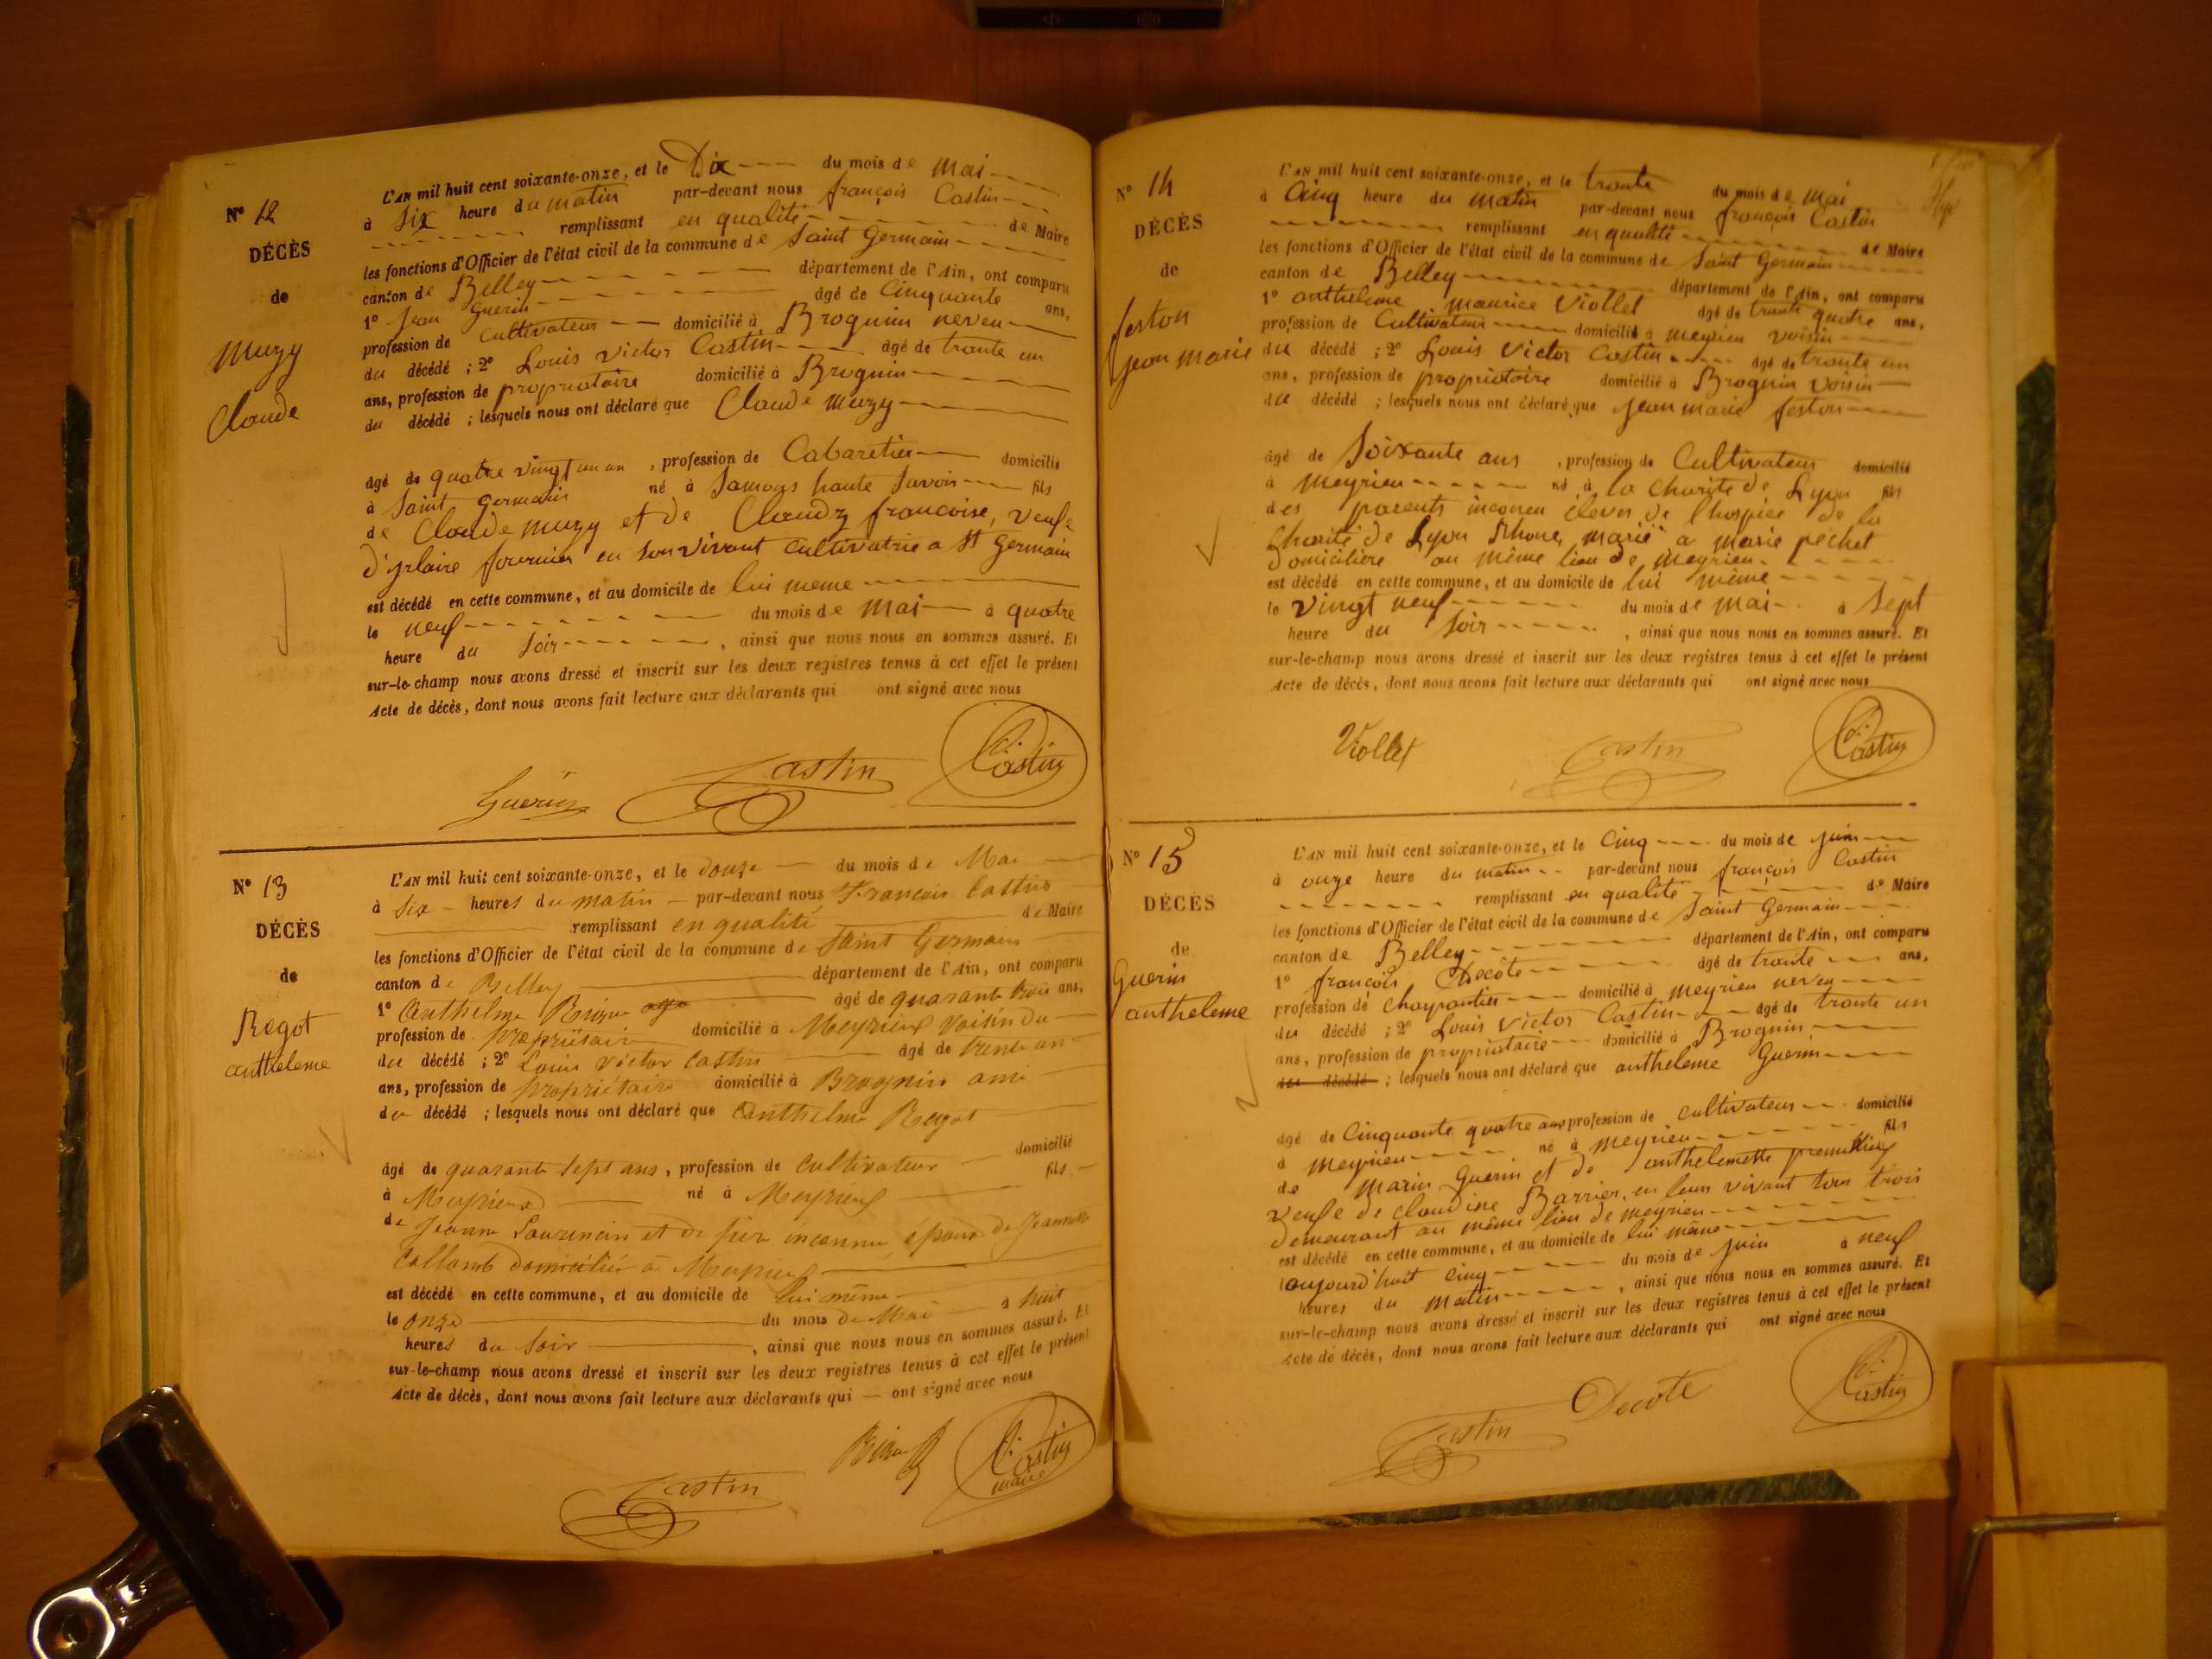 N° 12
DÉCÈS
de
Muzy
Claude
L'AN mil huit cent soixante-onze, et le Dix du mois de mai
à Six heure du matin par-devant nous françois Castin
remplissant en qualité de Maire
les fonctions d'Officier de l'état civil de la commune de Saint Germain
canton de Belley département de l'Ain, ont comparu
1° Jean Guerin âgé de Cinquante ans,
profession de Cultivateur domicilié à Brognin neveu
du décédé ; 2° Louis Victor Castin âgé de trante un
ans, profession de propriataire domicilié à Brognin
du décédé ; lesquels nous ont déclaré que Claude Muzy
âgé de quatre vingt un an , profession de Cabaretier domicilié
à Saint Germain né à Samoys haute Savoir fils
de Claude Muzy et de francoise, veufe
fournier en son vivant Cultivatrie a St Germain
est décédé en cette commune, et au domicile de lui meme
le neuf du mois de mai à quatre
heure du Soir , ainsi que nous nous en sommes assuré. Et
sur-le-champ nous avons dressé et inscrit sur les deux registres tenus à cet effet le présent
Acte de décès, dont nous avons fait lecture aux déclarants qui ont signé avec nous
Guérin Castin Castin
N° 13
DÉCÈS
de
Regot
antheleme
L'AN mil huit cent soixante-onze, et le douze du mois de Mai
à Six heures du matin par-devant nous François Castin
remplissant en qualité de Maire
les fonctions d'Officier de l'état civil de la commune de Saint Germain
canton de Belley département de l'Ain, ont comparu
1° Anthelme âgé de quarante trois ans,
profession de propriétaire domicilié à Meyrieux voisin du
du décédé ; 2° Louis Victor Castin âgé de trente un
ans, profession de propriétaire domicilié à Brognin ami
du décédé ; lesquels nous ont déclaré que Anthelme Regot
âgé de quarante sept ans, profession de cultivateur domicilié
à Meyrieux né à Meyrieux fils
de Jeanne Laurencin et de père inconnu, époux de Jeannette
Collomb domiciliés à Meyrieux
est décédé en cette commune, et au domicile de lui même
le onze du mois de Mai à huit
heures du soir , ainsi que nous nous en sommes assuré. Et
sur-le-champ nous avons dressé et inscrit sur les deux registres tenus à cet effet le présent
Acte de décès, dont nous avons fait lecture aux déclarants qui ont signé avec nous
Castin Castin
maire
N° 14
DÉCÈS
de
feston
jean marie
L'AN mil huit cent soixante-onze, et le trante du mois de Mai
à Cinq heure du matin par-devant nous françois Castin
remplissant en qualité de Maire
les fonctions d'Officier de l'état civil de la commune de Saint Germain
canton de Belley département de l'Ain, ont comparu
1° antheleme maurice Viollet âgé de trante quatre ans,
profession de Cultivateur domicilié à meyrieu voisin
du décédé ; 2° Louis Victor Castin âgé de trante un
ans, profession de propriotoire domicilié à Brognin voisin
du décédé ; lesquels nous ont déclaré que jean marie feston
âgé de Soixante ans , profession de Cultivateur domicilié
à meyrieu né à la Charité de Lyon fils
des parents inconeu élever de l'hospice de la
Charité de Lyon Rhone, marié a marie pechet
domicilière au même lieu de meyrieu
est décédé en cette commune, et au domicile de lui même
le vingt neuf du mois de mai à Sept
heure du Soir , ainsi que nous nous en sommes assuré. Et
sur-le-champ nous avons dressé et inscrit sur les deux registres tenus à cet effet le présent
Acte de décès, dont nous avons fait lecture aux déclarants qui ont signé avec nous
Viollet Castin Castin
N° 15
DÉCÈS
de
Guerin
antheleme
L'AN mil huit cent soixante-onze, et le Cinq du mois de juin
à onze heure du matin par-devant nous françois Castin
remplissant en qualité de Maire
les fonctions d'Officier de l'état civil de la commune de Saint Germain
canton de Belley département de l'Ain, ont comparu
1° françois Decôte âgé de trante ans,
profession de charpantier domicilié à meyrieu neveu
du décédé ; 2° Louis Victor Castin âgé de trante un
ans, profession de propriataire domicilié à Brognin
du décédé ; lesquels nous ont déclaré que antheleme Guerin
âgé de Cinquante quatre ans profession de cultivateur domicilié
à meyrieu né à meyrieu fils
de Marin Guerin et de anthelemette
veufe de claudine Barrier, en leur vivant tous trois
demeurant au même lieu de meyrieu
est décédé en cette commune, et au domicile de lui même
aujourd'huit cinq du mois de juin à neuf
heures du matin , ainsi que nous nous en sommes assuré. Et
sur-le-champ nous avons dressé et inscrit sur les deux registres tenus à cet effet le présent
Acte de décès, dont nous avons fait lecture aux déclarants qui ont signé avec nous
Castin Decote Castin